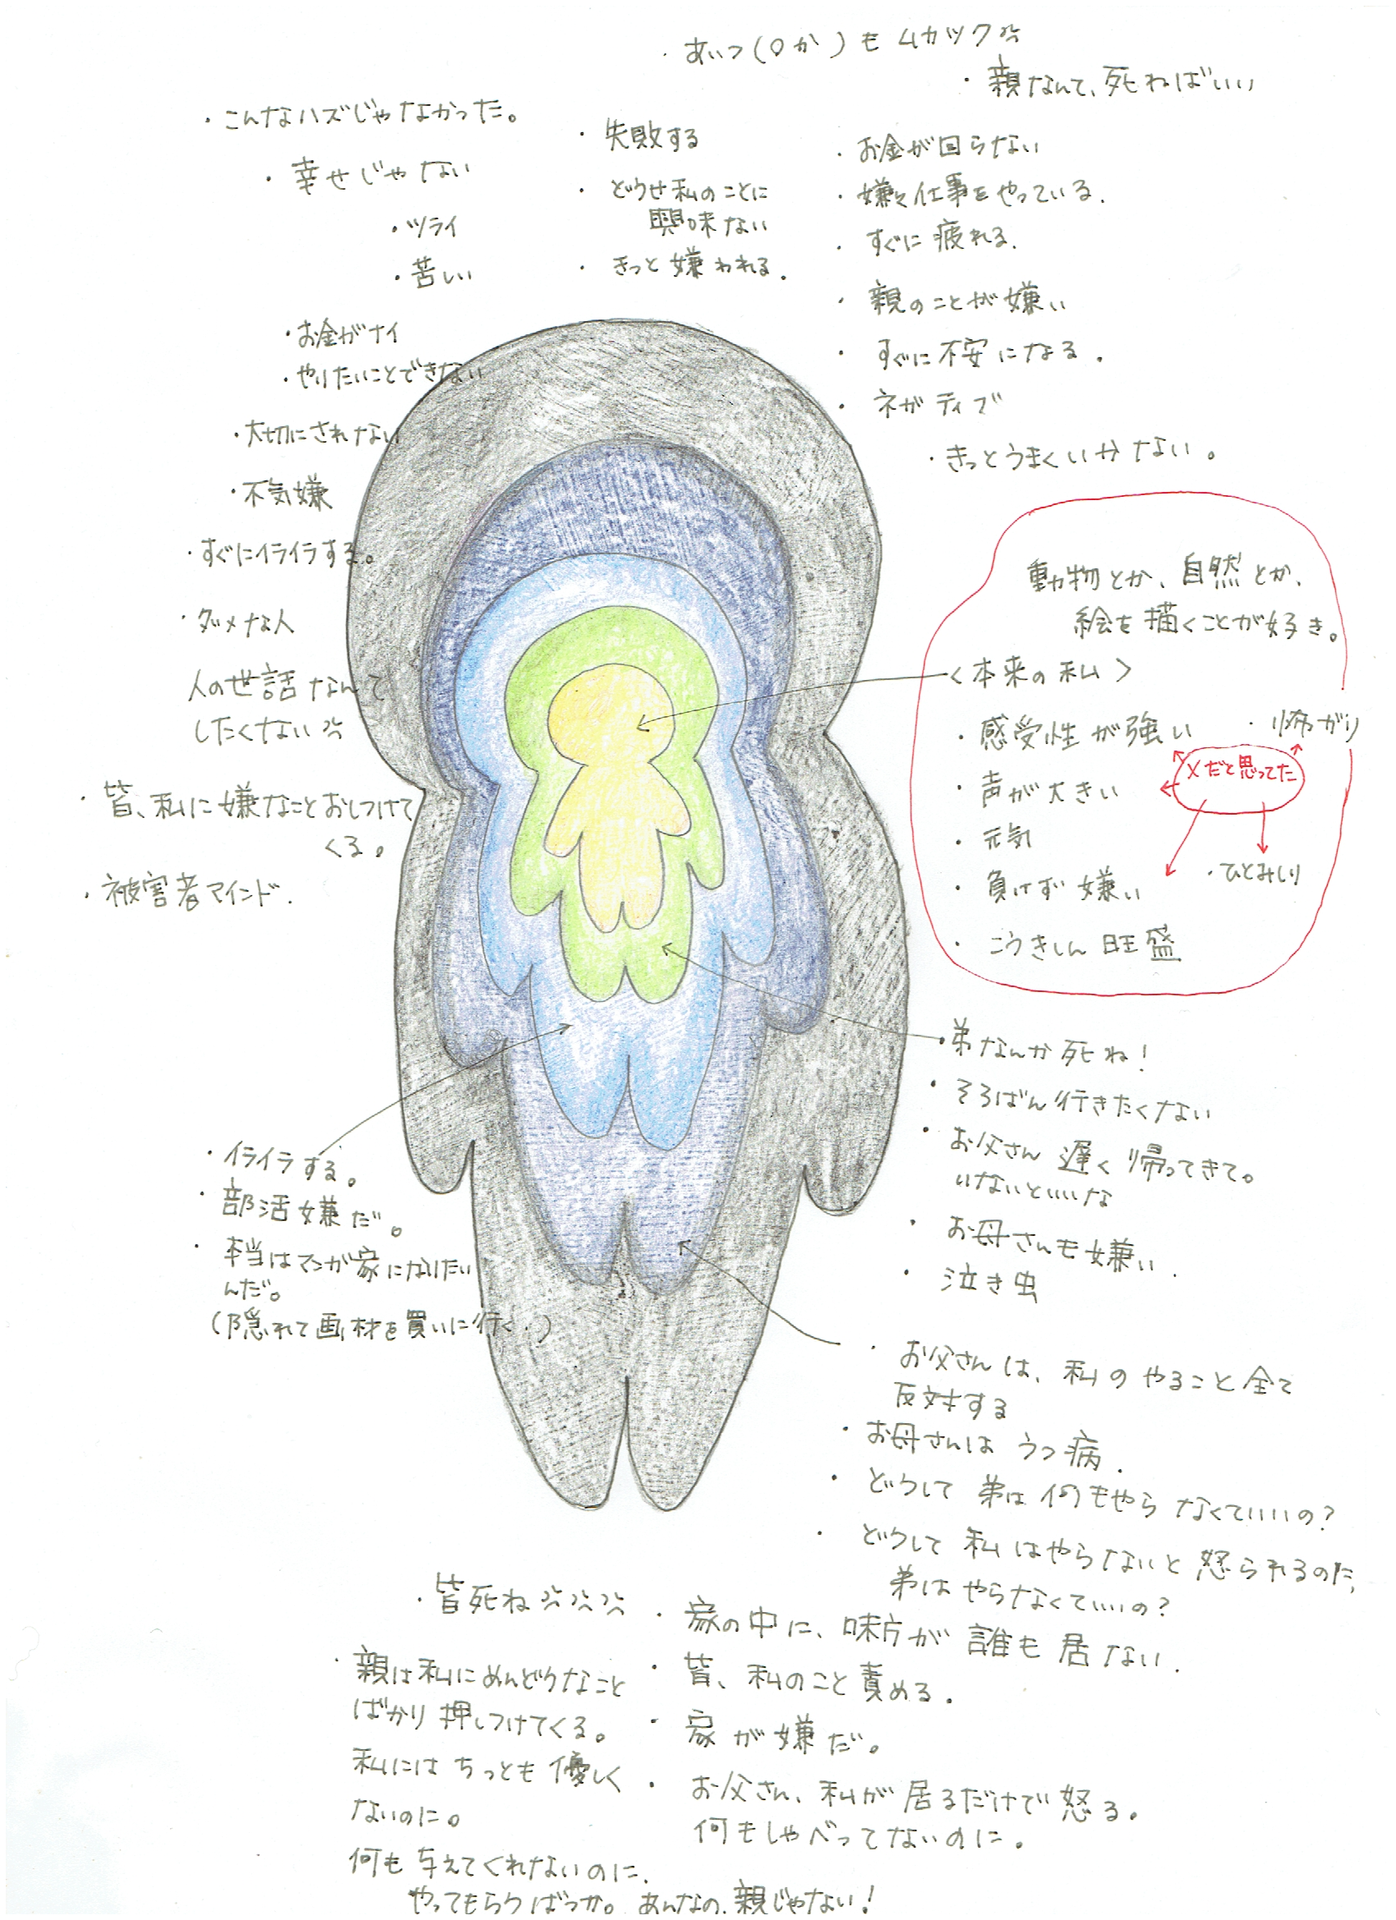 ・あいつ(○か)もムカツク
・親なんて、死ねばいい
・こんなハズじゃなかった。
・幸せじゃない
・ツライ
・苦しい
・お金がナイ
・やりたいことできない
・大切にされない
・不気嫌
・すぐにイライラする。
・ダメな人
人の世話なんて
したくない
・皆、私に嫌なことおしつけて
くる。
・被害者マインド.
・失敗する
・どうせ私のことに
興味ない
・きっと嫌われる.
・お金が回らない
・嫌々仕事をやっている.
・すぐに疲れる.
・親のことが嫌い
・すぐに不安になる.
・ネガティブ
・きっとうまくいかない。
動物とか、自然とか、
絵を描くことが好き。
<本来の私>
・感受性が強い
・怖がり
・声が大きい
×だと思ってた
・元気
・負けず嫌い
・ひとみしり
・こうきしん旺盛
・弟なんか死ね!
・そろばん行きたくない
・お父さん遅く帰ってきて。
いないといいな
・お母さんも嫌い.
・泣き虫
・イライラする。
・部活嫌だ。
・本当はマンガ家になりたい
んだ。
(隠れて画材を買いに行く.)
・お父さんは、私のやること全て
反対する
・お母さんはうつ病.
・どうして弟は何もやらなくていいの?
・どうして私はやらないと怒られるのに、
弟はやらなくていいの?
・家の中に、味方が誰も居ない.
・皆、私のこと責める.
・家が嫌だ。
・お父さん、私が居るだけで怒る。
何もしゃべってないのに.
・皆死ね
・親は私にめんどうなこと
ばかり押しつけてくる。
私にはちっとも優しく
ないのに。
何も与えてくれないのに.
やってもらうばっか。あんなの、親じゃない!